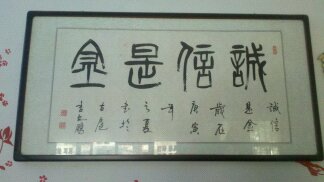 誠信是金
誠信
是金
歲在
庚寅
年
之夏
書於
古庭